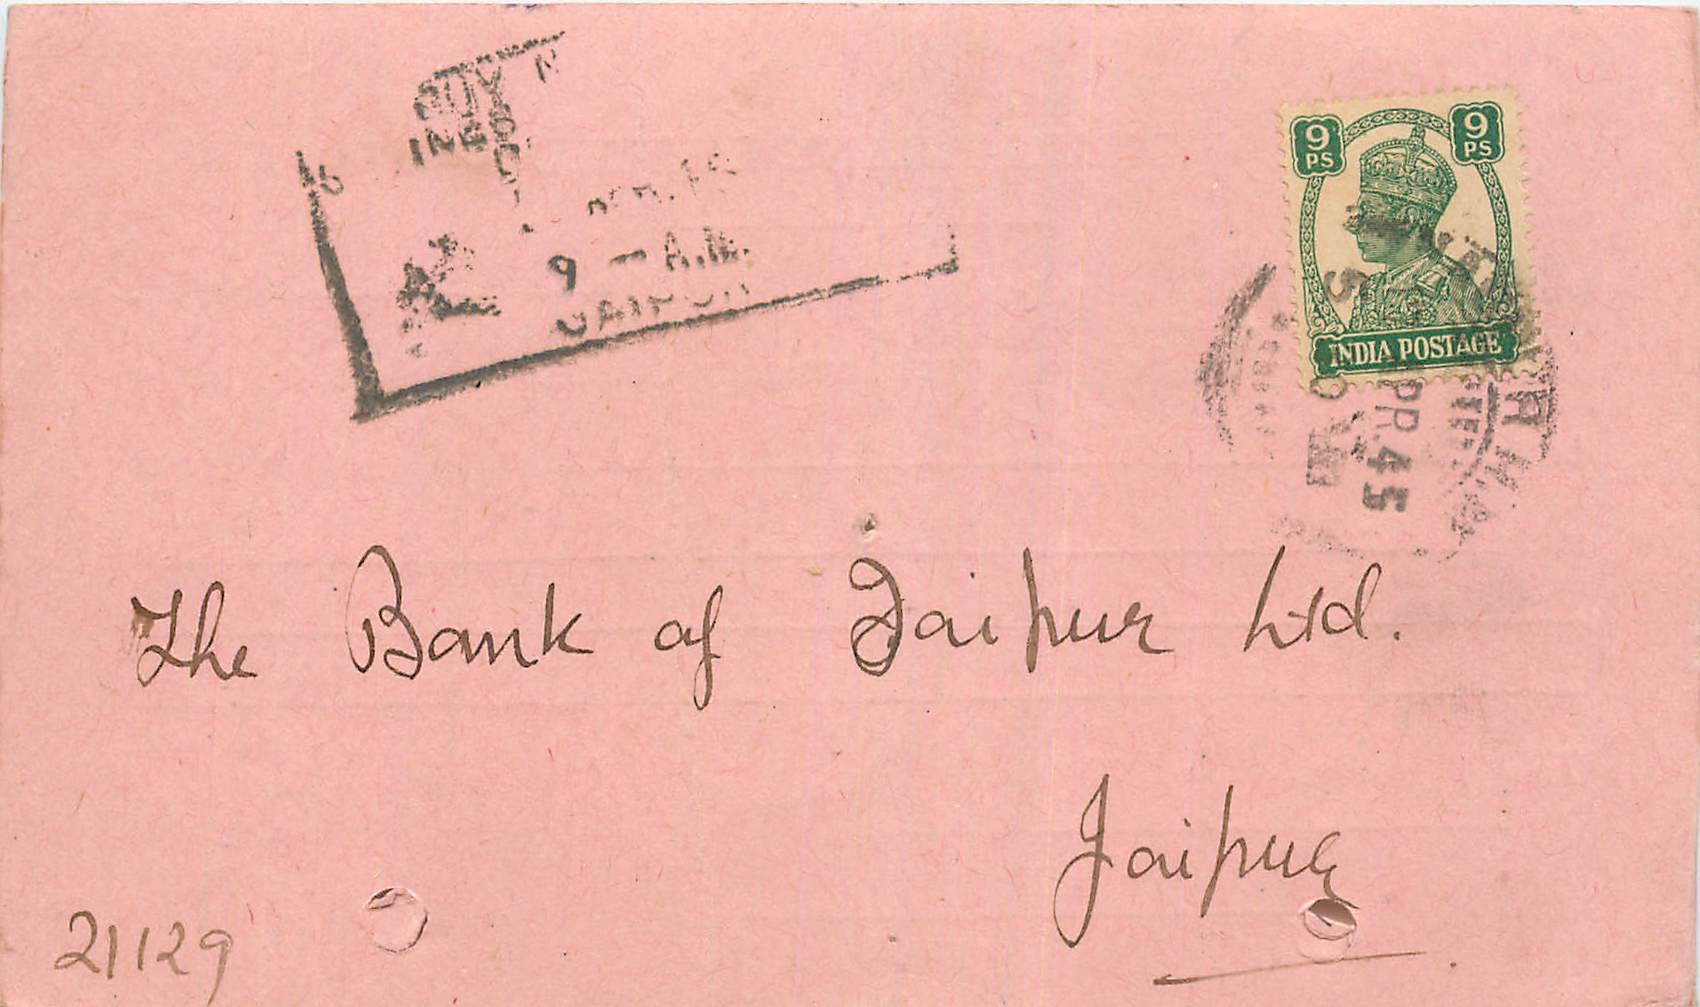 BUY N
INE
9 - A.M.
JAIPUR
9 PS 9 PS
INDIA POSTAGE
5 APR. 45
The Bank of Jaipur Ltd.
Jaipur
21129